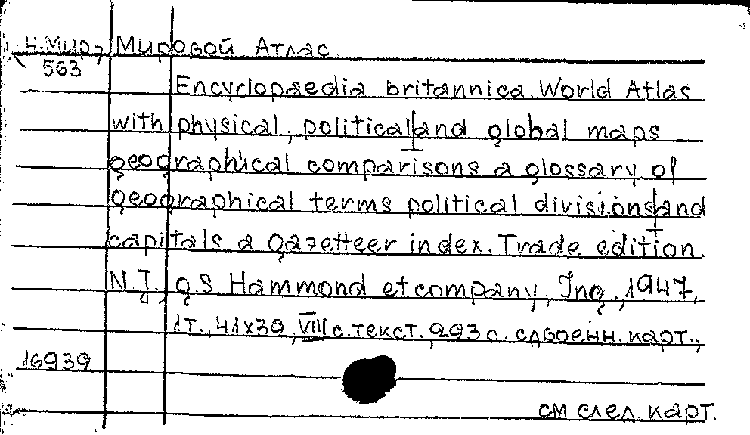 Н.Мир, Мировой Атлас.
563
Encyclopaedia britannica World Atlas
with physical, political and global maps
geographical comparisons a glossary of
geographical terms political divisions and
capitals a gazetteer index. Trade edition.
N.J., g.S Hammond et company, Inc., 1947,
1т., 41х39, VIII с. текст. 293 с. сдвоенн. карт.,
16939
см след. карт.